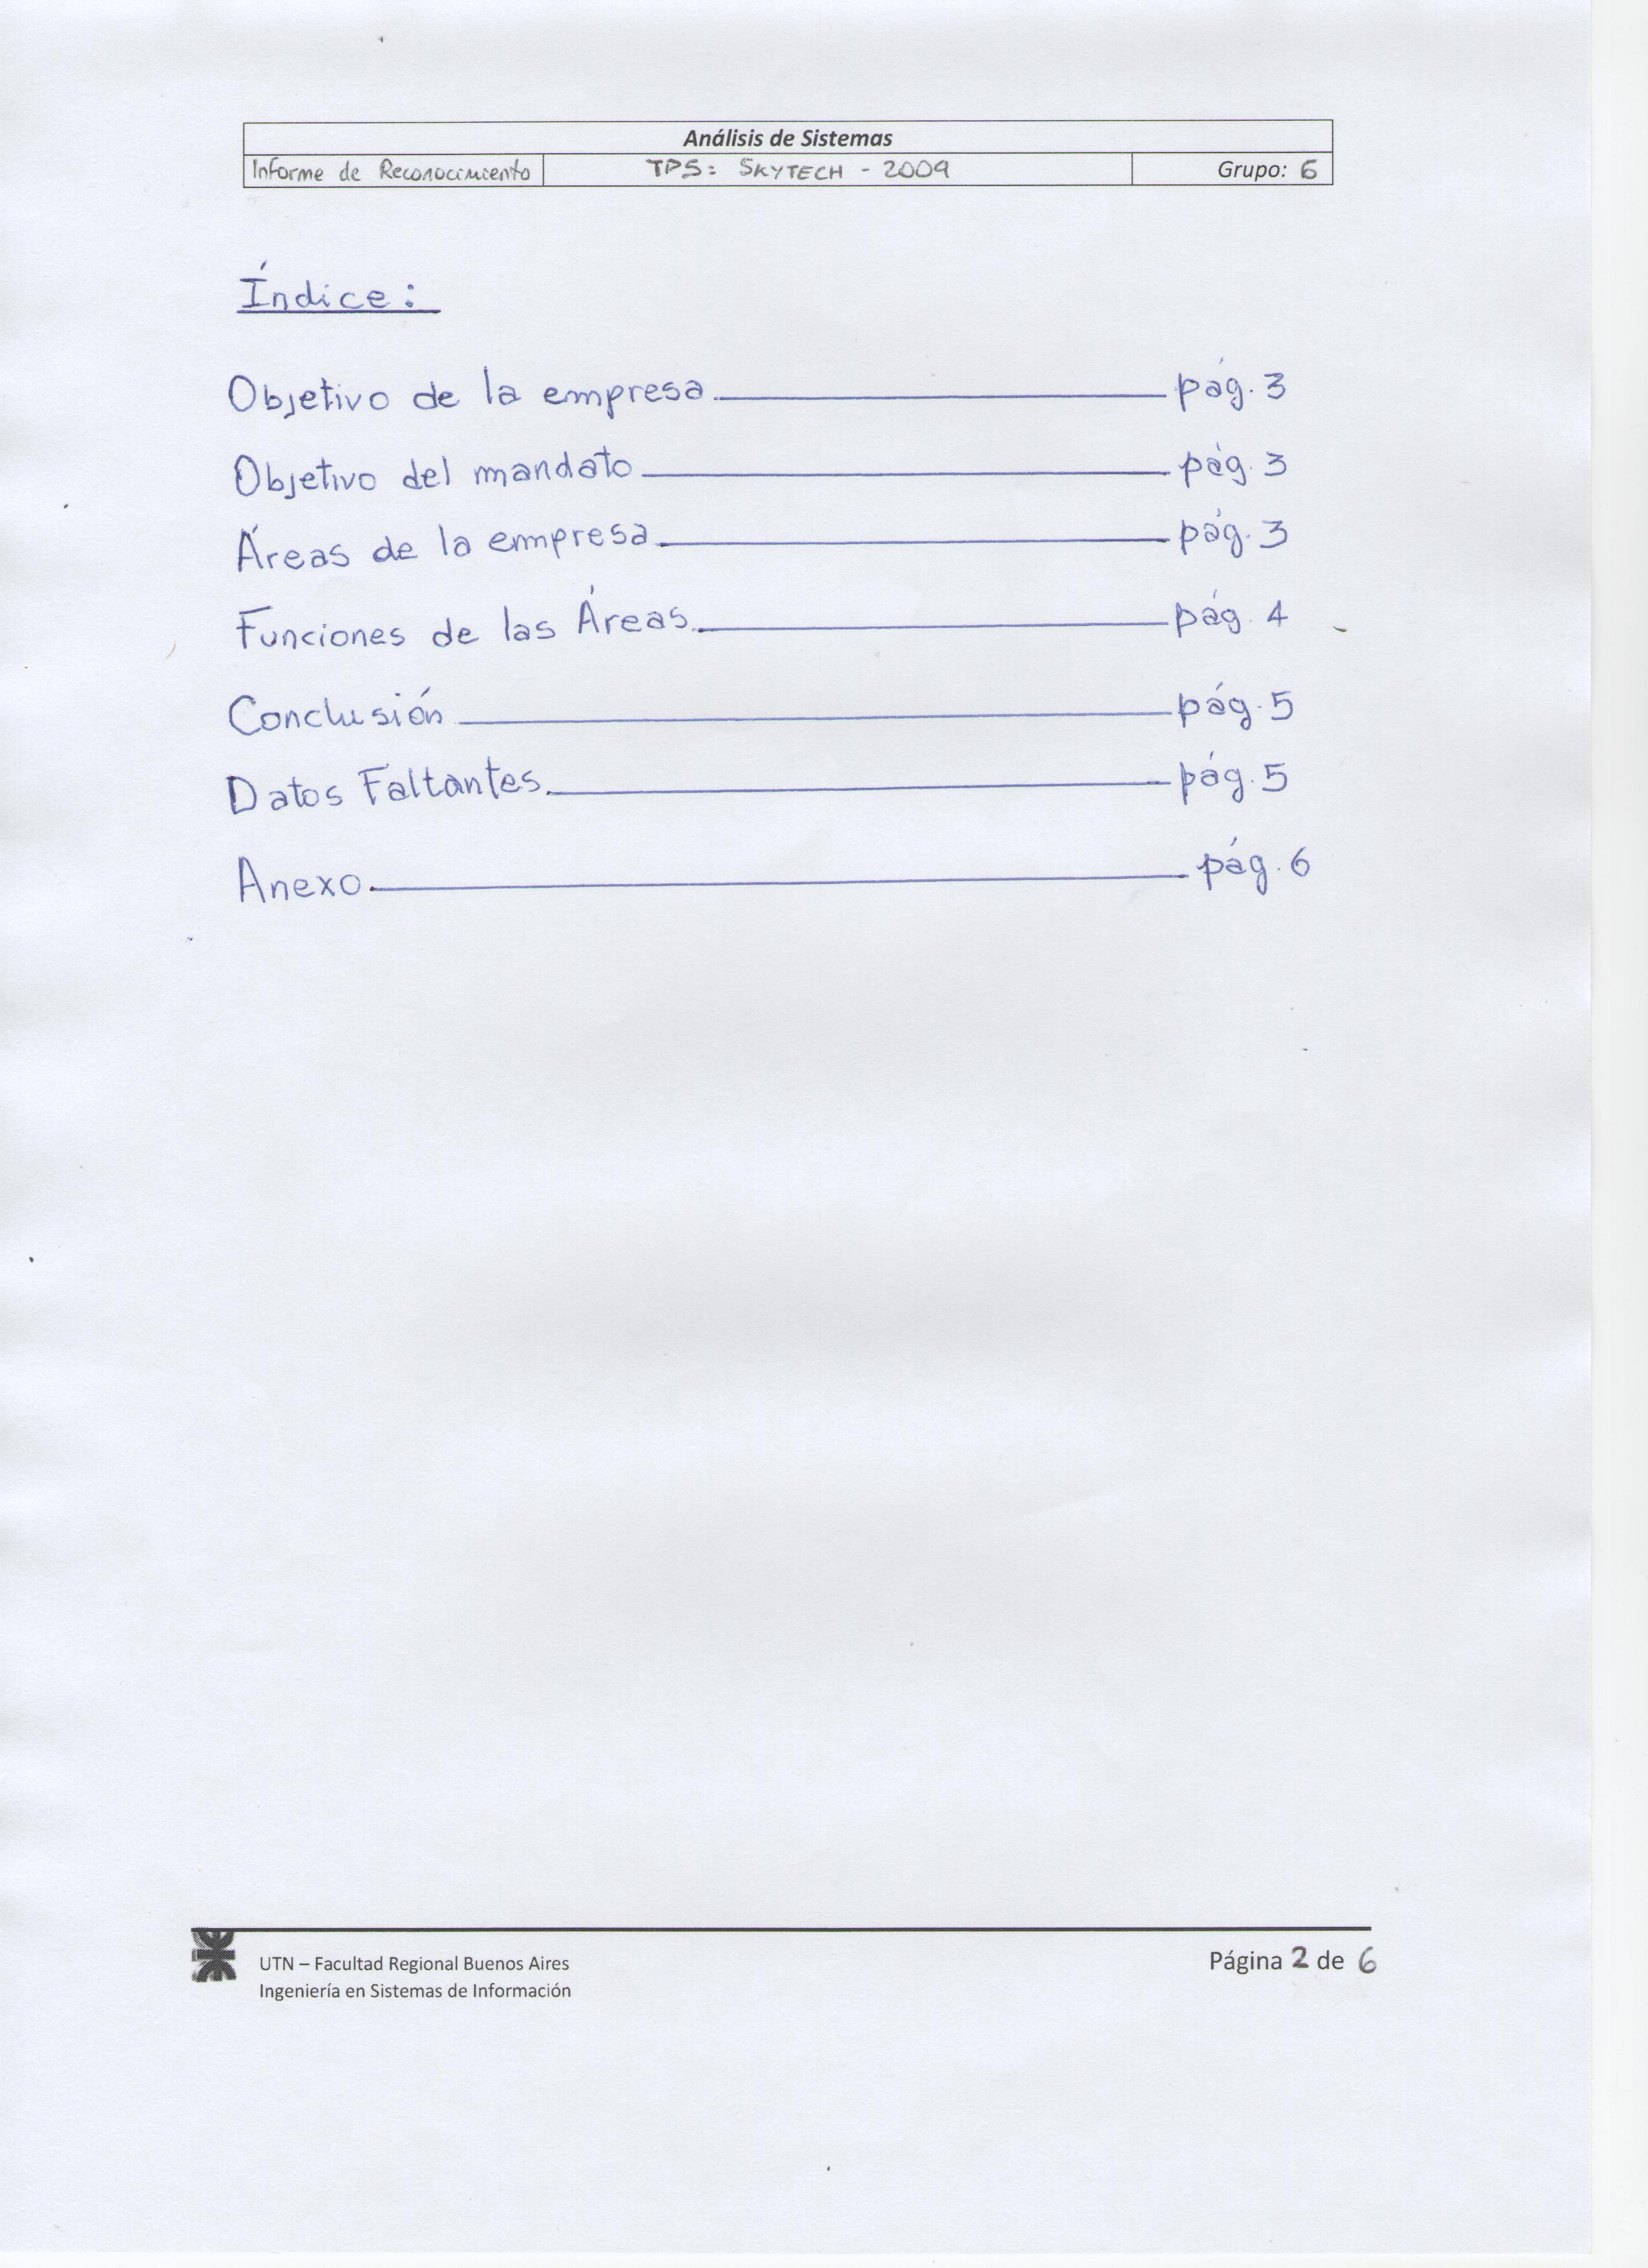 Análisis de Sistemas
Informe de Reconocimiento TPS: SKYTECH - 2009 Grupo: 6
Índice:
Objetivo de la empresa pág. 3
Objetivo del mandato pág. 3
Áreas de la empresa pág. 3
Funciones de las Áreas pág. 4
Conclusión pág. 5
Datos Faltantes pág. 5
Anexo pág. 6
UTN – Facultad Regional Buenos Aires Página 2 de 6
Ingeniería en Sistemas de Información